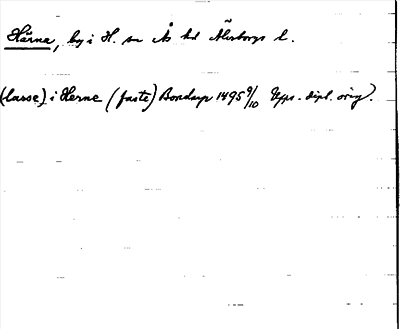 Härna, by i H. sn Ås hd Älvsborgs l.
(Lasse) i Herne (faste) Bondarp 1495 9/10 Upps. dipl. orig.